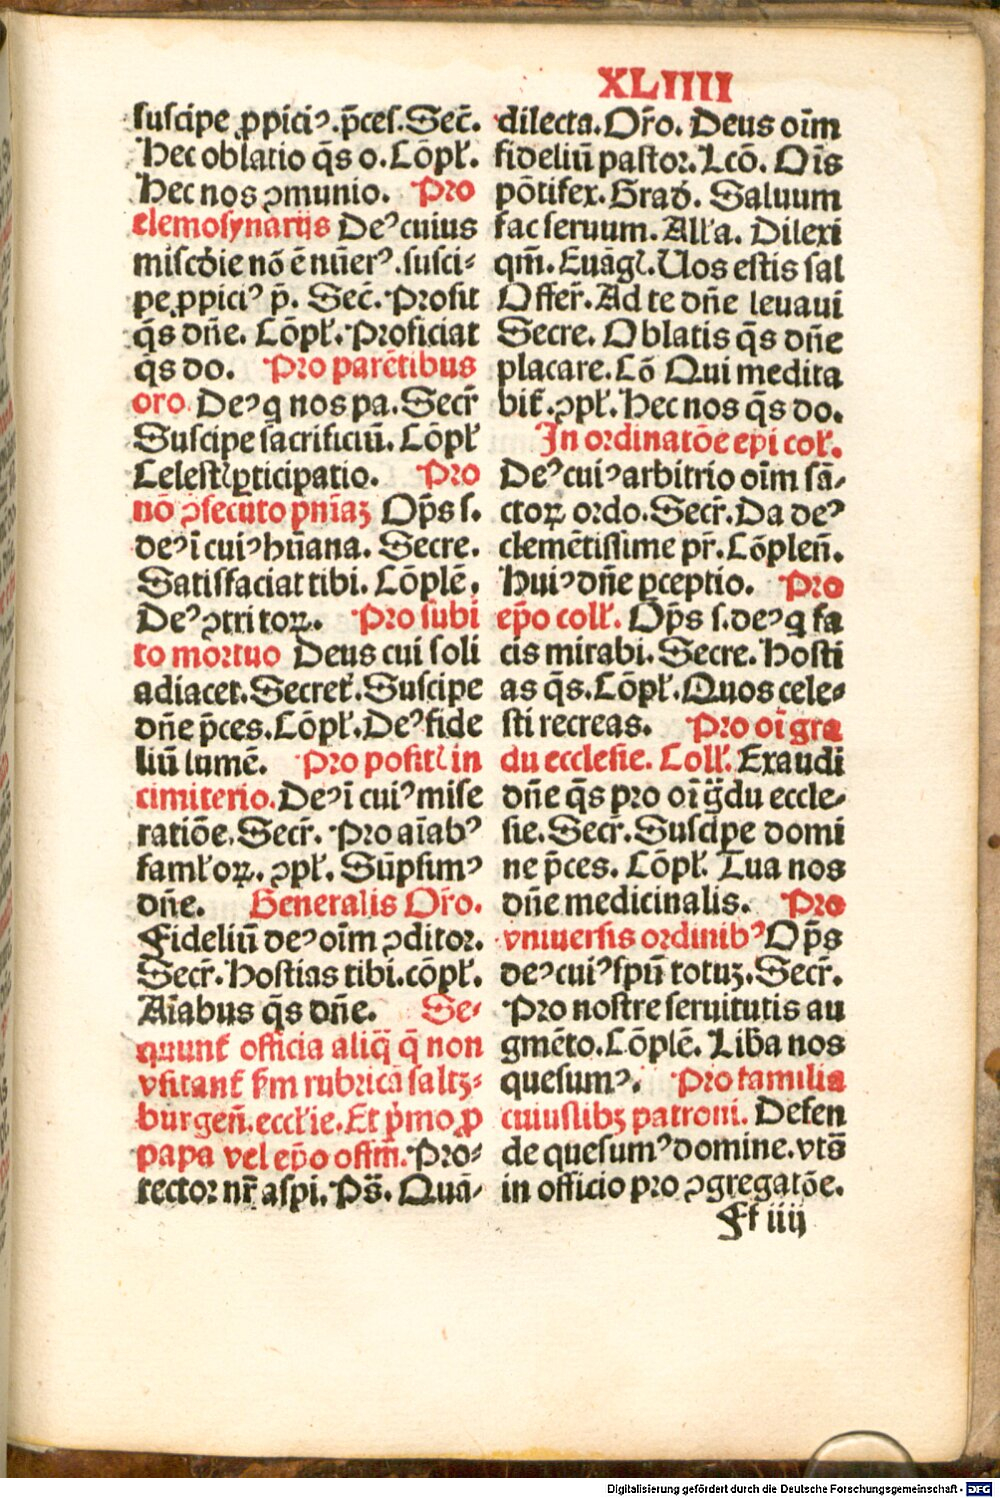 XLIIII
suscipe ꝓpiciꝰ.p̄ces.Sec̄.
Hec oblatio q̄s o.Cōpl̓.
Hec nos ꝯmunio. Pro
elemosynarijs Deꝰ cuius
misc̄die nō ē nūerꝰ.susci-
pe ꝓpiciꝰ p̄. Sec̄. Prosit
q̄s dn̄e. Cōpl̓. Proficiat
q̄s do. Pro parētibus
oro. Deꝰ q nos pa. Secr̄
Suscipe sacrificiū. Cōpl̓
Celestꝭ ꝑticipatio. Pro
nō ꝯsecuto pn̄iaꝫ Op̄s s.
deꝰ ī cuiꝰ hūana. Secre.
Satisfaciat tibi. Cōplē.
Deꝰ ꝯtritoꝝ. Pro subi
to mortuo Deus cui soli
adiacet. Secret̓. Suscipe
dn̄e p̄ces. Cōpl̓. Deꝰ fide
liū lumē. Pro positꝭ in
cimiterio. Deꝰ ī cuiꝰ mise
ratiōe. Secr̄. Pro aīabꝰ
faml̓oꝝ. ꝯpl̓. Sūpsimꝰ
dn̄e. Generalis Or̄o.
Fideliū deꝰ oīm ꝯditor.
Secr̄. Hostias tibi. cōpl̓.
Aīabus q̄s dn̄e. Se-
quunt̓ officia aliq̄ q̄ non
vsitant̓ ẜm rubricā saltz-
burgen̄. eccl̓ie. Et p̄mo ꝓ
papa vel ep̄o ostm̄. Pro-
tector nr̄ aspi. Ps̄. Quā-
dilecta. Or̄o. Deus oīm
fideliū pastor. Lcō. Oīs
pōtifex. Grad̄. Saluum
fac seruum. All̓a. Dilexi
qm̄. Euāgꝭ. Uos estis sal
Offer̄. Ad te dn̄e leuaui
Secre. Oblatis q̄s dn̄e
placare. Cō Qui medita
bit̓. ꝯpl̓. Hec nos q̄s do.
In ordinatōe ep̄i col̓.
Deꝰ cuiꝰ arbitrio oīm sā-
ctoꝝ ordo. Secr̄. Da deꝰ
clemētissime pr̄. Cōplen̄.
Huiꝰ dn̄e ꝑceptio. Pro
ep̄o coll̓. Op̄s s. deꝰ q fa
cis mirabi. Secre. Hosti
as q̄s. Cōpl̓. Quos cele-
sti recreas. Pro oī gra
du ecclesie. Coll̓. Exaudi
dn̄e q̄s pro oī g̈du eccle-
sie. Secr̄. Suscipe domi
ne p̄ces. Cōpl̓. Tua nos
dn̄e medicinalis. Pro
vniuersis ordinibꝰ Op̄s
deꝰ cuiꝰ spū totuꝫ. Secr̄.
Pro nostre seruitutis au
gmēto. Cōplē. Lib̄a nos
quesumꝰ. Pro familia
cuiuslibꝫ patroni. Defen
de quesumꝰ domine. vts̄
in officio pro ꝯgregatōe.
Ff iiij
Digitalisierung gefördert durch die Deutsche Forschungsgemeinschaft - DFG